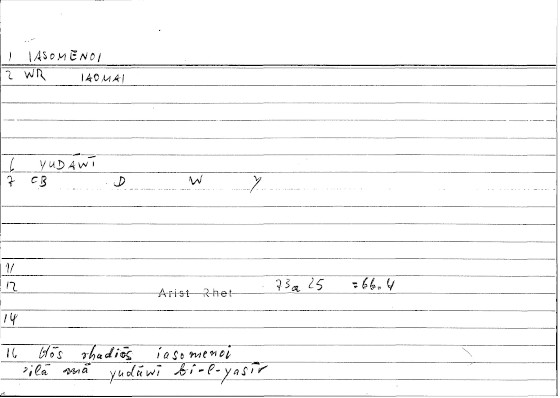 1 IASOMENOI
2 WR IAOMAI
6 YUDĀWĪ
7 CB D W Y
11
12 Arist Rhet 73a 25 =66.4
14
16 Hōs rhadiōs iasomenoi
ilā mā yudāwī bi-l-yasīr